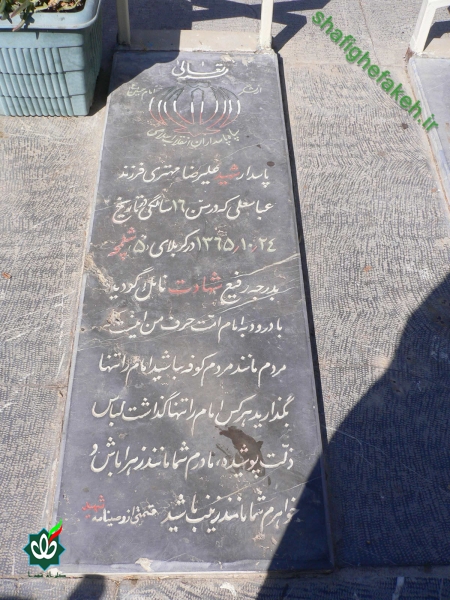 بسمه تعالی
سپاه پاسداران انقلاب اسلامی
پاسدار شهید علیرضا مهتری فرزند
عباسعلی که در سن ۱۶ سالگی در تاریخ
۱۳۶۵٫۱۰٫۲۴ در کربلای ۵ شلمچه
بدرجه رفیع شهادت نائل گردید
با درود به امام امت حرف من اینست
مردم مانند مردم کوفه نباشید امام را تنها
نگذارید هر کس امام را تنها گذاشت لباس
ذلت پوشیده، مادرم شما مانند زهرا باش و
خواهرم شما مانند زینب باشید قسمتی از وصیتنامه شهید
shafighefakeh.ir